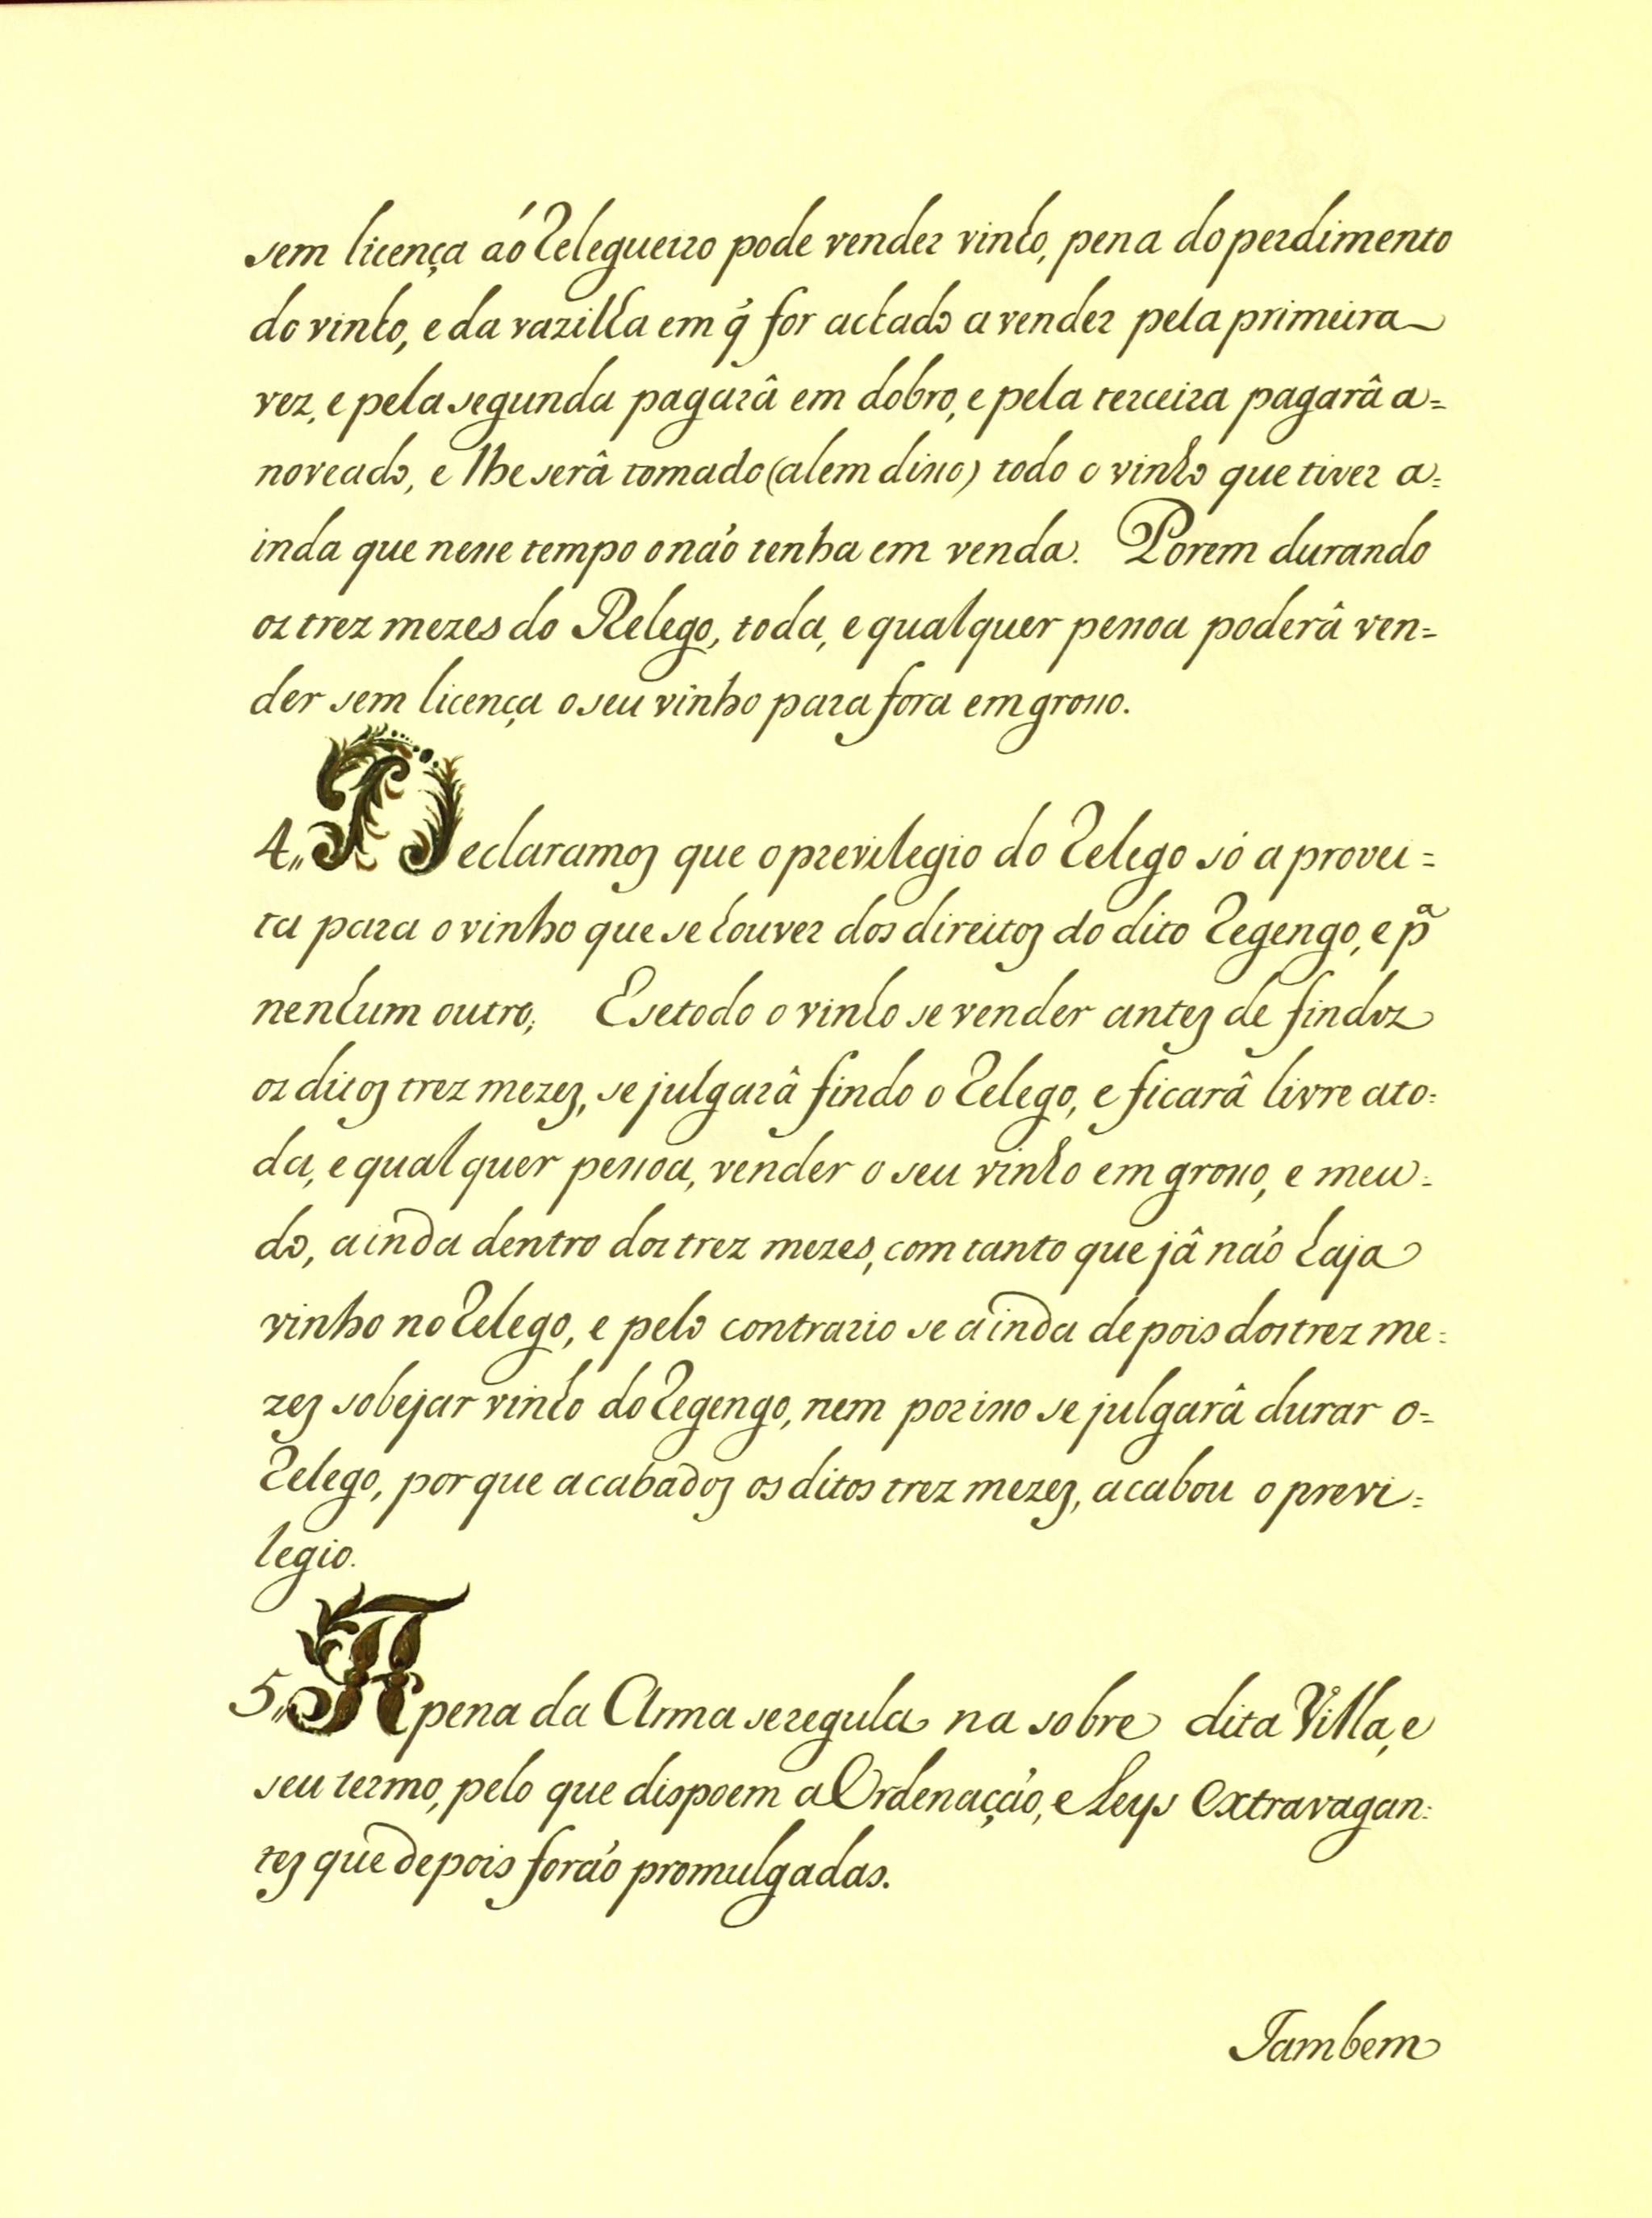 sem licença aó Relegueiro pode vender vinho, pena do perdimento
do vinho, e da vazilha em q̃ for achado a vender pela primeira
vez, e pela segunda pagarâ em dobro, e pela terceira pagarâ a=
noveado, e lhe serâ tomado (alem disso) todo o vinho que tiver a=
inda que nesse tempo o naõ tenha em venda. Porem durando
os trez mezes do Relego, toda, e qualquer pessoa poderâ ven=
der sem licença o seu vinho para fora em grosso.
4„ Declaramos que o previlegio do Relego só aprovei=
ta para o vinho que se houver dos direitos do dito Regengo, e pª
nenhum outro; E se todo o vinho se vender antes de findos
os ditos trez mezes, se julgarâ findo o Relego, e ficarâ livre a to=
da, e qualquer pessoa, vender o seu vinho em grosso, e meu=
do, ainda dentro dos trez mezes, com tanto que jâ naõ haja
vinho no Relego, e pelo contrario se ainda depois dos trez me=
zes sobejar vinho do Regengo, nem por isso se julgarâ durar o=
Relego, porque acabados os ditos trez mezes, acabou o previ=
legio.
5„ A pena da Arma se regula na sobre dita Villa, e
seu termo, pelo que dispoem a Ordenaçaõ, e Leys Extravagan=
tes que depois foraõ promulgadas.
Tambem